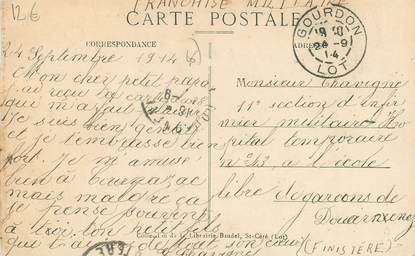 12€
FRANCHISE MILITAIRE
CARTE POSTALE
CORRESPONDANCE
ADRESSE
GOURDON
24-9
14
LOT
24 Septembre 1914
Mon cher petit papa
j'ai reçu ta carte
que m'a fait
Je suis bien
et je t'embrasse bien
fort. Je m'amuse
bien à
mais malgré ça
je pense souvent
à toi. Ton petit fils
qui t'aime de tout son cœur
Chavigné
Monsieur Chavigné
11e section d'infir
mier militaire Ho
pital temporaire
n° 43, à l'école
libre de garçons de
Douarnenez
(FINISTÈRE)
Collection de la Librairie Baudel, St-Céré (Lot)